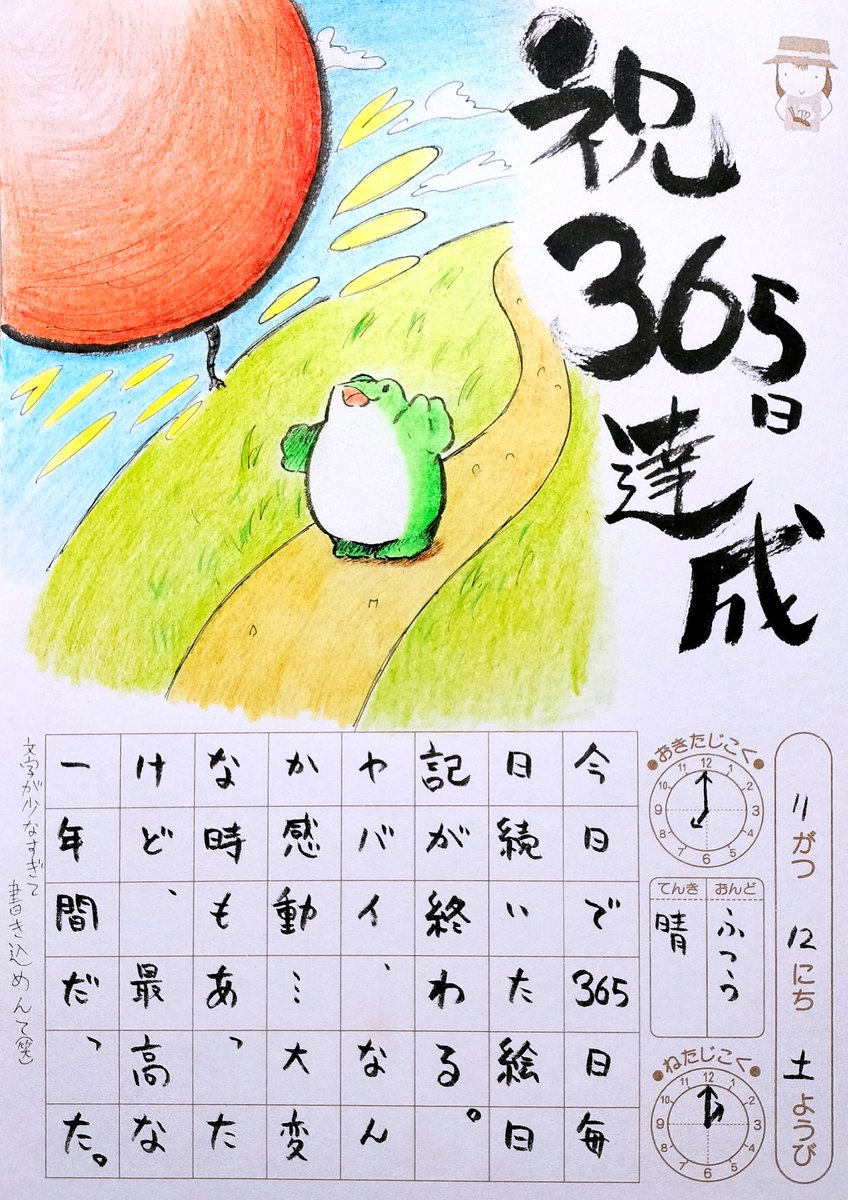 祝
365日
達成
11がつ 12にち 土ようび
おきたじこく
12 1 2 3 4 5 6 7 8 9 10 11
おんど
ふつう
てんき
晴
ねたじこく
12 1 2 3 4 5 6 7 8 9 10 11
今日で365日毎
日続いた絵日
記が終わる。
ヤバイ、なん
か感動…大変
な時もあった
けど、最高な
一年間だった。
文字が少なすぎて
書き込めんて(笑)